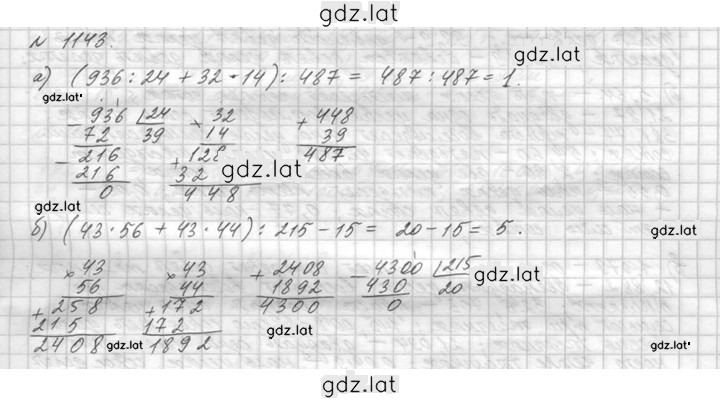 gdz.lat
№ 1143.
gdz.lat
а) (936 : 24 + 32 · 14) : 487 = 487 : 487 = 1.
gdz.lat
- 936 | 24   × 32   + 448
72   39   14   39
- 216   + 128   487
216   32   gdz.lat
0   448
gdz.lat
б) (43 · 56 + 43 · 44) : 215 - 15 = 20 - 15 = 5.
gdz.lat
× 43   × 43   + 2408   - 4300 | 215
56   44   1892   430   20   gdz.lat
+ 258   + 172   4300   0
215   172   gdz.lat
2408   gdz.lat   1892   gdz.lat
gdz.lat